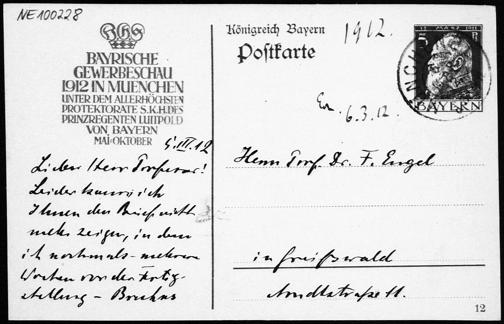 NE100228
BAYRISCHE
GEWERBESCHAU
1912 IN MUENCHEN
UNTER DEM ALLERHÖCHSTEN
PROTEKTORATE S.K.H. DES
PRINZREGENTEN LUITPOLD
VON BAYERN
MAI-OKTOBER
Königreich Bayern
Postkarte
1912.
5
BAYERN
6.3.12.
5.III.12
Lieber Herr Professor!
Leider kann ich
Ihnen den Brief nicht
mehr zeigen, in dem
ich nochmals - mehrere
Wochen vor der Fertig-
stellung - Bruckm
Herrn Prof. Dr. F. Engel
in Greifswald
Arndtstrasse 11.
12